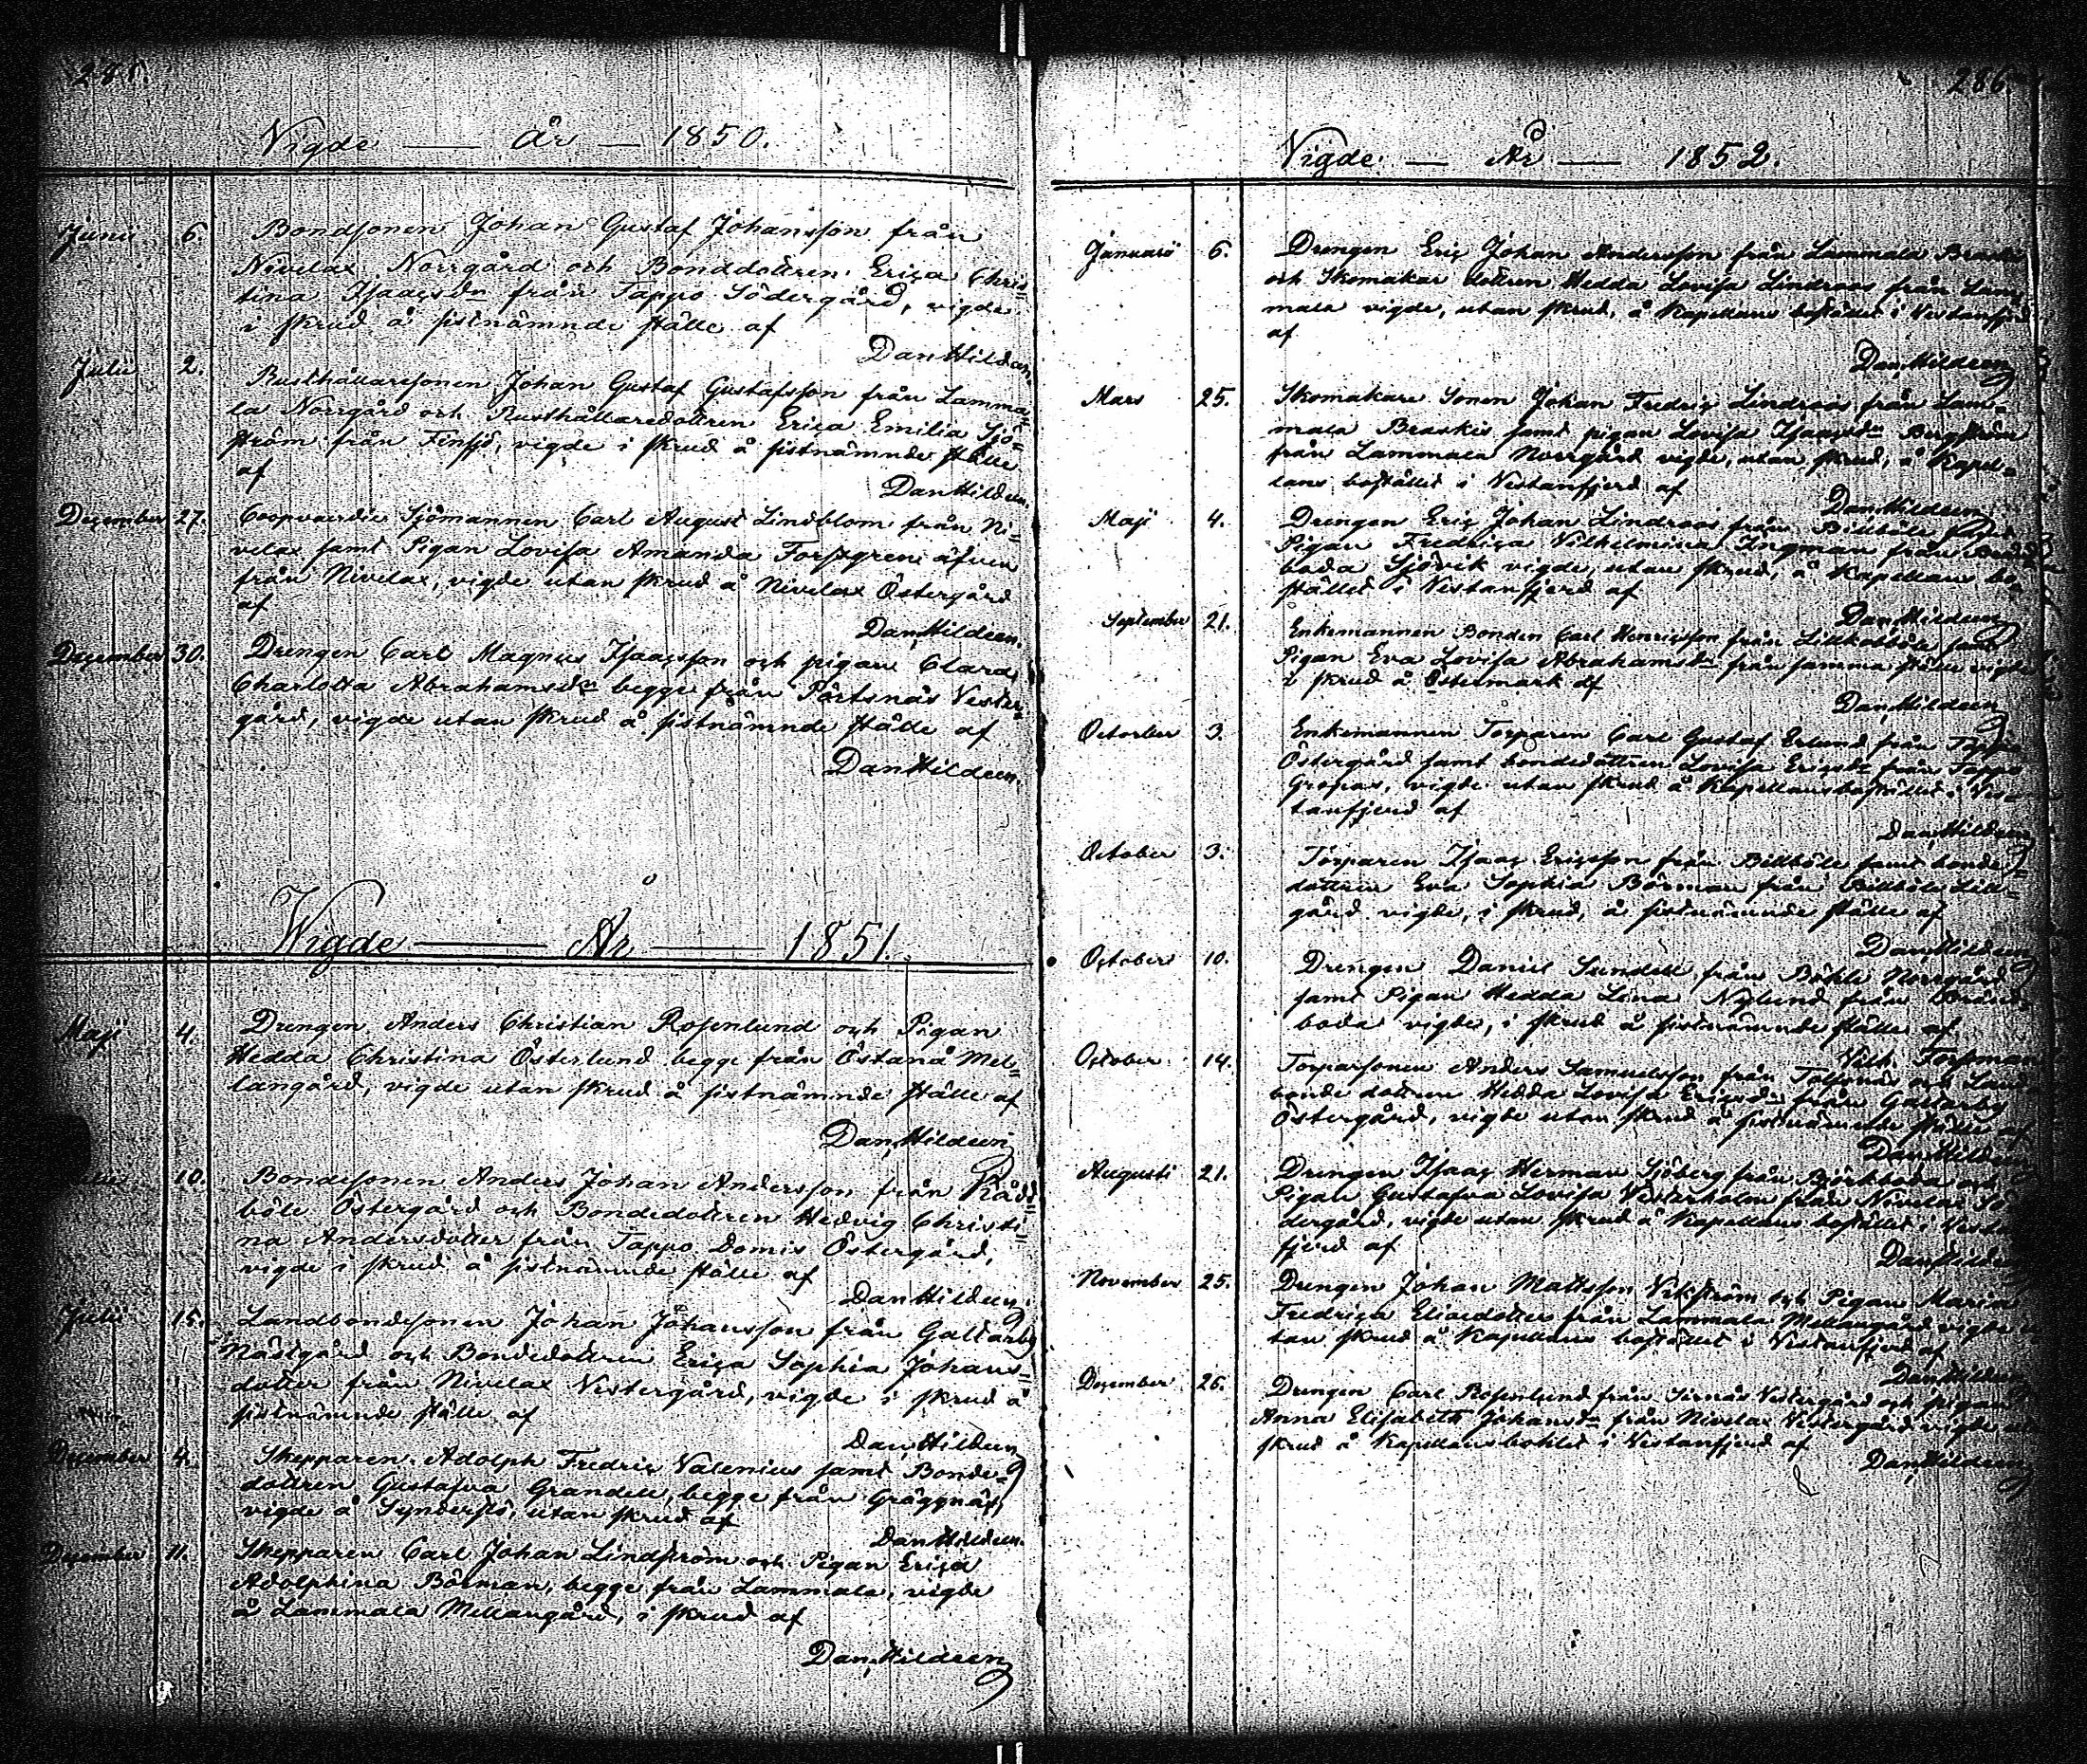 285.
Vigde — År — 1850.
Junii 6. Bondsonen Johan Gustaf Johansson från
Nivelax Norrgård och Bonddottren Erica Chris=
tina Isaacsdr från Tappo Södergård, vigde
i skrud å sistnämnde ställe af
Dan. Hildeen.
Julii 2. Rusthållaresonen Johan Gustaf Gustafsson från Lamma=
la Norrgård och Rusthållaredottren Erica Emilia Sjö=
ström från Finsjö, vigde i skrud å sistnämnde ställe
af
Dan Hildeen.
December 27. Coopvaerdie Sjömannen Carl August Lindblom från Ni=
velax samt Pigan Lovisa Amanda Forsgren äfven
från Nivelax, vigde utan skrud å Nivelax Östergård
af
Dan. Hildeen.
December 30. Drengen Carl Magnus Isaacsson och pigan Clara
Charlotta Abrahamsdr begge från Pörtsnäs Vester=
gård, vigde utan skrud å sistnämnde ställe af
Dan Hildeen.
Wigde — År — 1851.
Maji 4. Drengen Anders Christian Rosenlund och Pigan
Hedda Christina Österlund begge från Östanå Mel=
langård, vigde utan skrud å sistnämnde ställe af
Dan. Hildeen
10. Bondesonen Anders Johan Andersson från Rådd=
böle Östergård och Bondedottren Hedvig Christi=
na Andersdotter från Tappo Domis Östergård,
vigde i skrud å sistnämnde ställe af
Dan Hildeen.
Julii 15. Landbondesonen Johan Johansson från Galtarby
Nästgård och Bondedottren Erica Sophia Johans=
dotter från Nivelax Vestergård, vigde i skrud å
sistnämnde ställe af
Dan. Hildeen
December 4. Skepparen Adolph Fredric Valenius samt Bonde=
dottren Gustafva Grandell, begge från Gräggnäs,
vigde å utan skrud af
Dan Hildeen.
December 11. Skepparen Carl Johan Lindström och Pigan Erica
Adolphina Börman, begge från Lammala, vigde
å Lammala Mellangård, i skrud af
Dan. Hildeen
286
Vigde — År — 1852.
Januarii 6. Drengen Eric Johan Andersson från Lammala Braskis
och Skomakar dottren Hedda Lovisa Lindroos från Lam=
mala vigde, utan skrud, å Kapellans bostället i Vestanfjerd
af
Dan. Hildeen
Mars 25. Skomakare Sonen Johan Fredric Lindroos från Lam=
mala Braskis samt pigan Lovisa Isaacsdr Bergström
från Lammala Norrgård vigde, utan skrud, å Kapel=
lans bostället i Vestanfjerd af
Dan. Hildeen
Maji 4. Drengen Eric Johan Lindroos från Billböle samt
Pigan Fredrica Vilhelmina Ingman från
boda Sjövik vigde, utan skrud, å Kapellans bo=
stället i Vestanfjerd af
Dan. Hildeen
September 21. Enkemannen Bonden Carl Henricsson från Lillkalböle samt
Pigan Eva Lovisa Abrahamsdr från samma ställe vigde
i skrud å Östermark af
Dan. Hildeen
October 3. Enkemannen Torparen Carl Gustaf Erlund från Tappo
Östergård samt bondedottren Lovisa Ericsdr från Tappo
Gropas, vigde utan skrud å Kapellansbostället i Ves=
tanfjerd af
Dan. Hildeen
October 3. Torparen Isaac Ericsson från Billböle samt bonde=
dottren Eva Sophia Börman från Billböle Lill=
gård vigde, i skrud, å sistnämnde ställe af
Dan. Hildeen
October 10. Drengen Daniel Sundell från Böhle Norrgård
samt Pigan Hedda Lena Nylund från
boda vigde, i skrud å sistnämnde ställe af
Vilh. Forsman
October 14. Torparsonen Anders Samuelsson från Tolfsnäs och Land=
bonde dottren Hedda Lovisa Ericsdr från Galtarby
Östergård, vigde utan skrud å sistnämnde ställe af
Dan. Hildeen
Augusti 21. Drengen Isaac Herman Sjöberg från Björkboda och
Pigan Gustafva Lovisa Vesterholm från Nivelax Sö=
dergård, vigde utan skrud å Kapellans bostället i Vestan
fjerd af
Dan. Hildeen
November 25. Drengen Johan Mattsson Vikström och Pigan Maria
Fredrica Eliaedotter från Lammala Mellangård vigde u
tan skrud å Kapellans bostället i Vestanfjerd af
Dan. Hildeen
December 26. Drengen Carl Rosenlund från Sirnäs Vestergård och pigan
Anna Elisabeth Johansdr från Nivelax Vestergård vigde
skrud å Kapellansbohlet i Vestanfjerd af
Dan. Hildeen